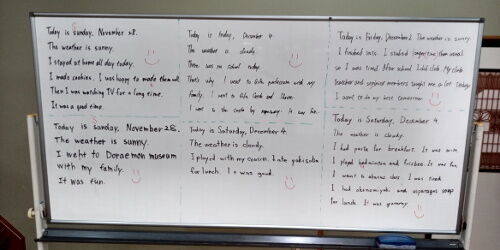 Today is Sunday, November 28.
The weather is sunny.
I stayed at home all day today.
I made cookies. I was happy to made them well.
Then I was watching TV for a long time.
It was a good time.
Today is today, December 4.
The weather is cloudy.
There was no school today.
That's why I went to with my
family. I went to
I went to the by It was fun.
Today is Friday, December 2. The weather is sunny.
I finished tests. I studied longer time than usual
so I was tired. After school I did club. My club
teacher and members taught me a lot today.
I want to do my best tomorrow.
Today is Sunday, November 28.
The weather is sunny.
I went to Doraemon museum
with my family.
It was fun.
Today is Saturday, December 4.
The weather is cloudy.
I played with my cousin. I ate yakisoba
for lunch. It was good.
Today is Saturday, December 4.
The weather is cloudy.
I had for breakfast. It was
I played badminton and frisbee. It was fun.
I went to abacus class. I was tired.
I had okonomiyaki and asparagus soup
for lunch. It was yummy.